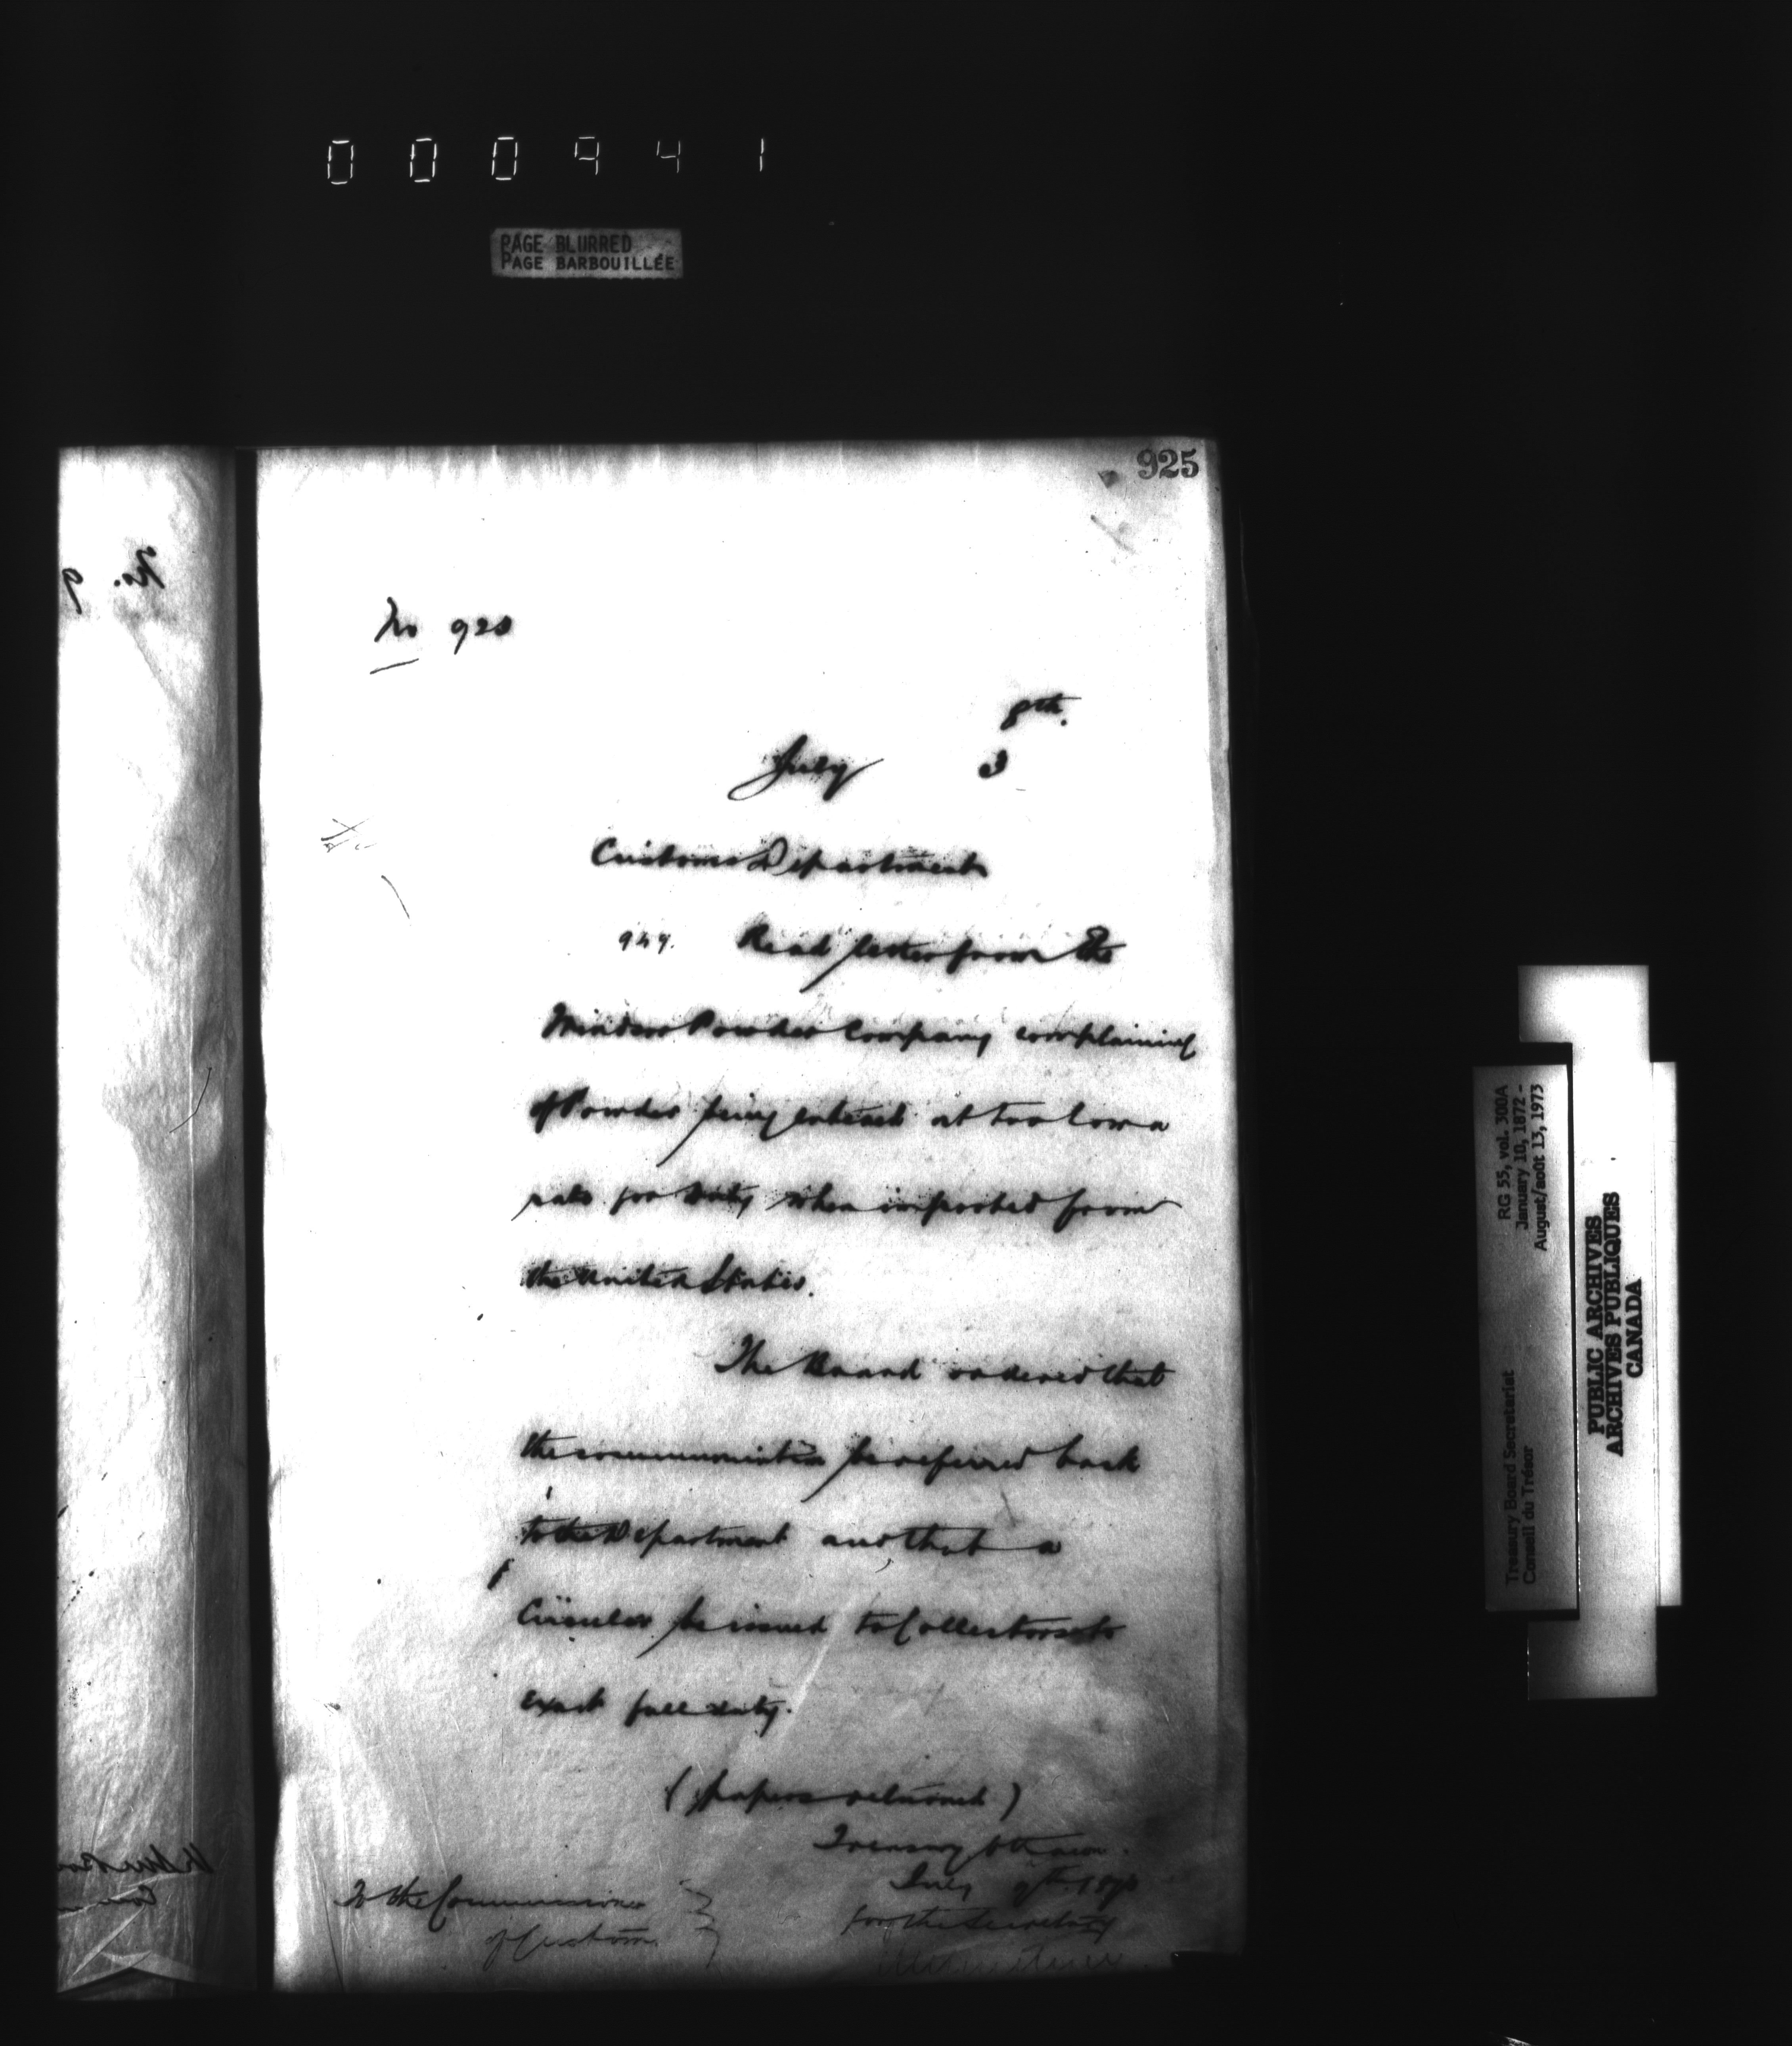 000941
PAGE BLURRED
PAGE BARBOUILLÉE
925
No 920
8th.
July 3
Customs Department
947. Read letter from the
Windsor Powder Company complaining
of Powder being entered at too low a
rate for duty when imported from
the United States.
The Board ordered that
the communication be referred back
to the Department and that a
Circular be issued to Collectors to
exact full duty.
(papers returned)
Treasury
July 9th. 187
for the Secretary
To the Commissioner
of Customs
RG 55, vol. 300A
January 10, 1872 -
August/août 13, 1973
Treasury Board Secretariat
Conseil du Trésor
PUBLIC ARCHIVES
ARCHIVES PUBLIQUES
CANADA